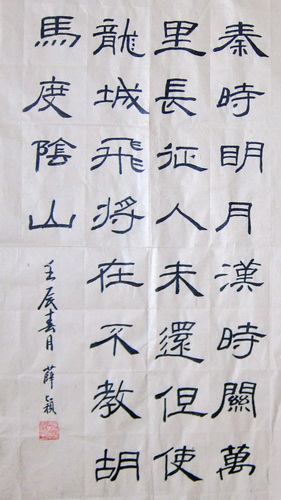 秦時明月漢時關萬
里長征人未還但使
龍城飛將在不教胡
馬度陰山
壬辰春月 薛穎